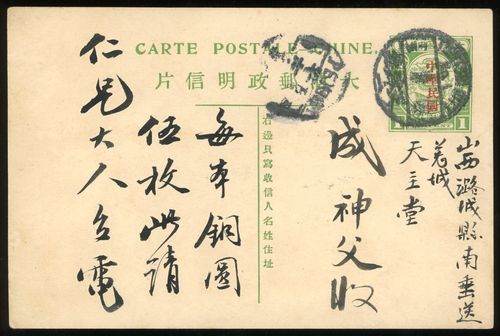 CARTE POSTALE CHINE.
片信明政郵清大
中華民國
1
1
山西潞城縣南垂送
羌城
天主堂
成神父收
右邊只寫收信人名姓住址
每本銅圓
伍枚此請
仁兄大人台電